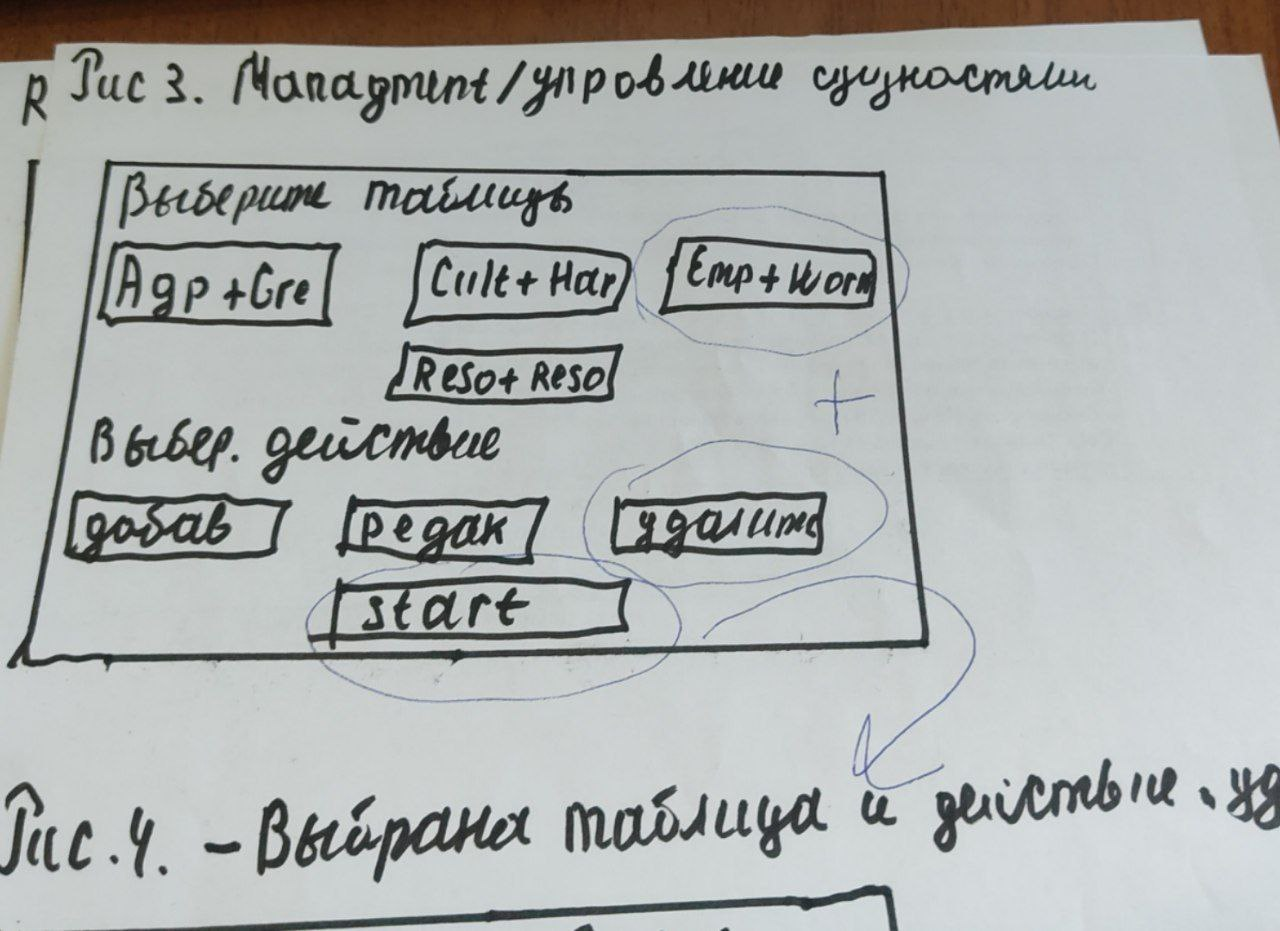 R
Рис 3. Managment/упровление сущностями
Выберите таблицы
Agp+Gre Cult+Har Emp+Worm
Reso+Reso
Выбер. действие
добав редак удалить
start
+
Рис.4. - Выбрана таблица и действие. уд